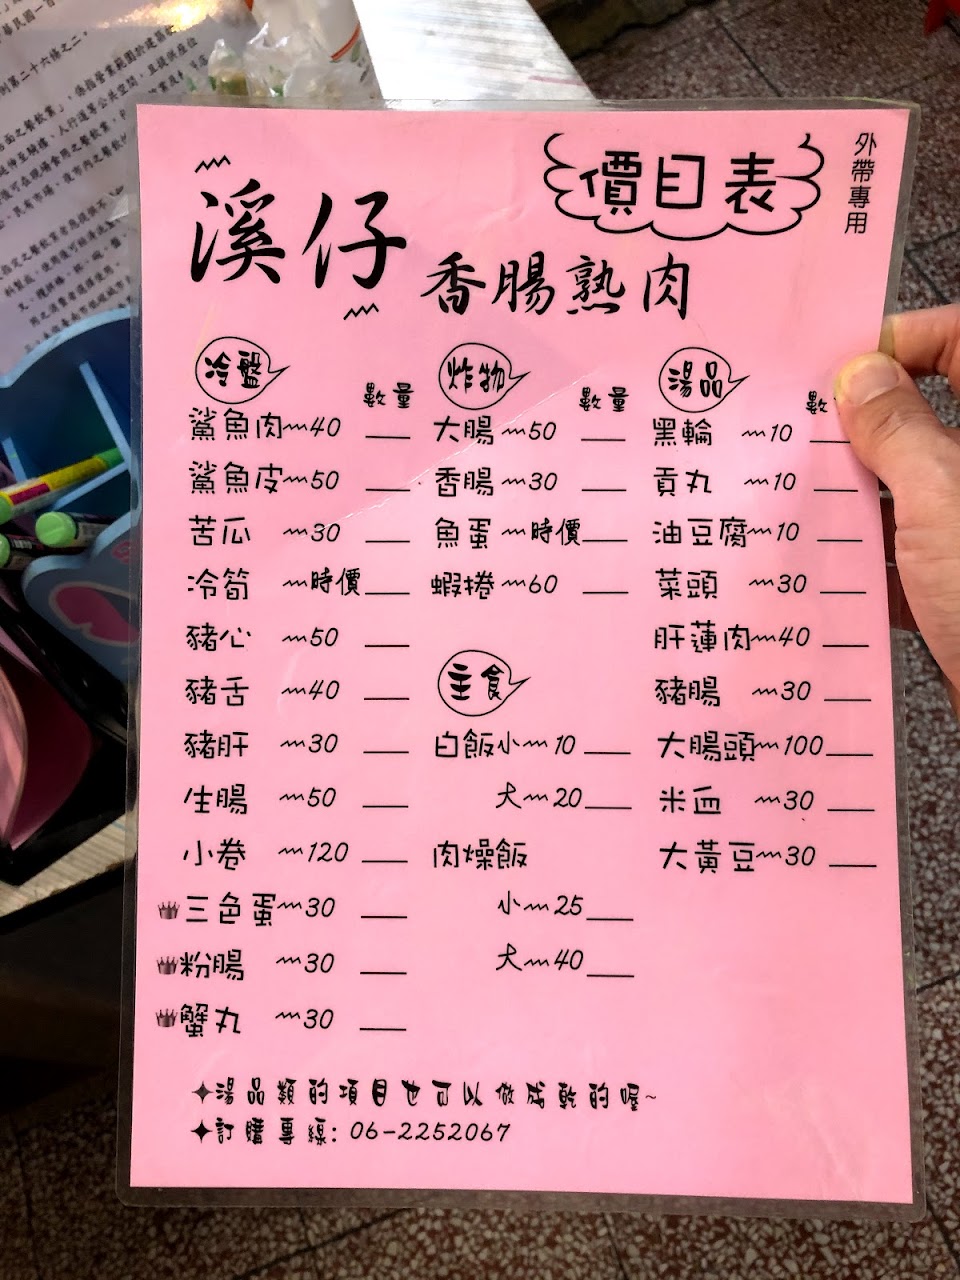 價目表
外帶專用
溪仔
香腸熟肉
冷盤
數量
鯊魚肉~40
鯊魚皮~50
苦瓜~30
冷筍~時價
豬心~50
豬舌~40
豬肝~30
生腸~50
小卷~120
三色蛋~30
粉腸~30
蟹丸~30
炸物
數量
大腸~50
香腸~30
魚蛋~時價
蝦捲~60
主食
白飯小~10
大~20
肉燥飯
小~25
大~40
湯品
數
黑輪~10
貢丸~10
油豆腐~10
菜頭~30
肝蓮肉~40
豬腸~30
大腸頭~100
米血~30
大黃豆~30
✦湯品類的項目也可以做成乾的喔~
✦訂購專線: 06-2252067